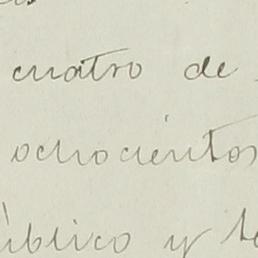 cuatro de
ochocientos
úblico y te